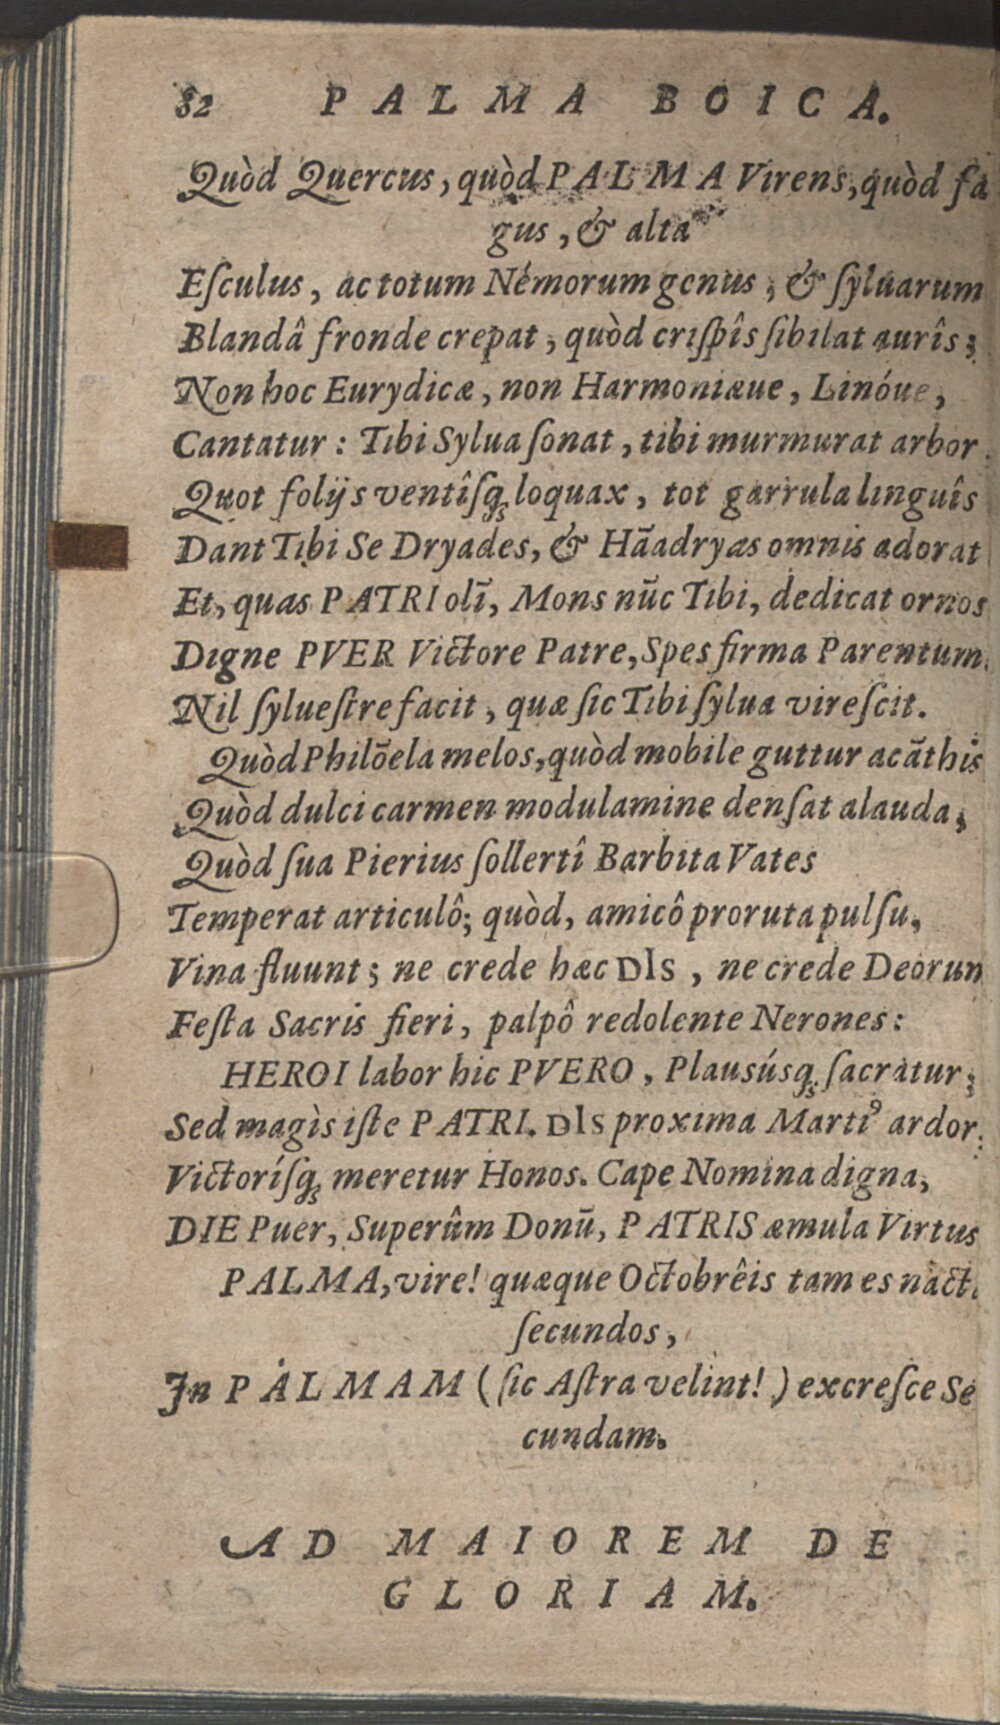 82 PALMA BOICA.
Quòd Quercus, quòd PALMA Virens, quòd fa
gus, & alta
Eſculus, ac totum Némorum genus; & ſyluarum
Blandâ fronde crepat, quòd criſpîs ſibilat aurîs;
Non hoc Eurydicæ, non Harmoniæue, Linóue,
Cantatur: Tibi Sylua ſonat, tibi murmurat arbor.
Quot folijs ventîſq́ꝫ loquax, tot garrula linguîs
Dant Tibi Se Dryades, & Hāadryas omnis adorat
Et, quas PATRI olī, Mons nūc Tibi, dedicat ornos
Digne PVER Victore Patre, Spes firma Parentum.
Nil ſylueſtre facit, quæ ſic Tibi ſylua vireſcit.
Quòd Philōela melos, quòd mobile guttur acāthis
Quòd dulci carmen modulamine denſat alauda;
Quòd ſua Pierius ſollertî Barbita Vates
Temperat articulô; quòd, amicô proruta pulſu,
Vina fluunt; ne crede hæc DIs, ne crede Deorun
Feſta Sacris fieri, palpô redolente Nerones:
HEROI labor hic PVERO, Plausúsqꝫ ſacratur;
Sed magìs iſte PATRI. DIs proxima Martiꝰ ardor;
Victoríſqꝫ meretur Honos. Cape Nomina digna,
DIE Puer, Superûm Donū, PATRIS æmula Virtus
PALMA, vire! quæque Octobrêis tam es nact.
ſecundos,
In PALMAM (ſic Aſtra velint!) excreſce Se
cundam.
AD MAIOREM DE
GLORIAM.